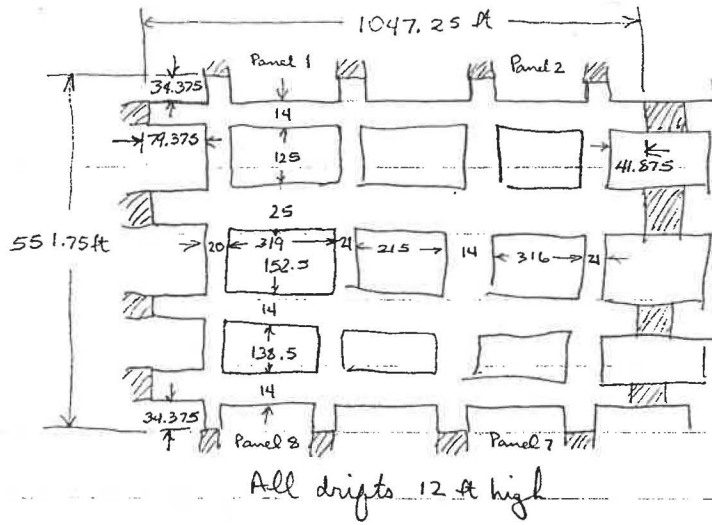 1047.25 ft
Panel 1 Panel 2
34.375
14
79.375
125
41.875
25
551.75 ft
20 319 21 215 14 316 21
152.5
14
138.5
14
34.375
Panel 8 Panel 7
All drifts 12 ft high